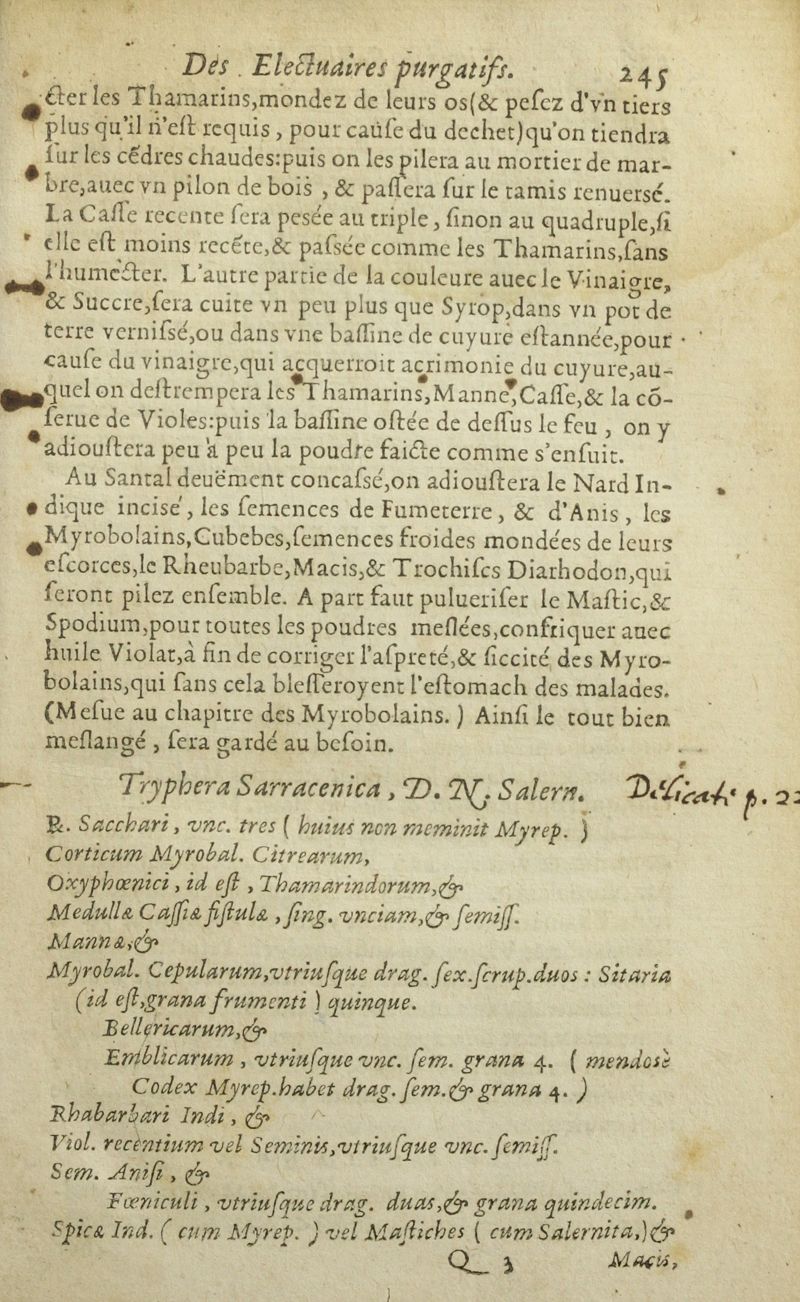 Des . Electuaires purgatifs. 245
cter les Thamarins,mondez de leurs os(& pesez d'vn tiers
plus qu'il n'est requis , pour caûse du dechet)qu'on tiendra
sur les cẽdres chaudes:puis on les pilera au mortier de mar-
bre,auec vn pilon de bois , & passera sur le tamis renuersé.
La Casse recente sera pesée au triple , sinon au quadruple,si
elle est moins recẽte,& passée comme les Thamarins,sans
l'humecter. L'autre partie de la couleure auec le Vinaigre,
& Succre,sera cuite vn peu plus que Syrop,dans vn pot de
terre vernissé,ou dans vne bassine de cuyure estannée,pour
cause du vinaigre,qui acquerroit acrimonie du cuyure,au-
quel on destrempera les Thamarins,Manne,Casse,& la cõ-
serue de Violes:puis la bassine ostée de dessus le feu , on y
adioustera peu à peu la poudre faicte comme s'ensuit.
Au Santal deuëment concassé,on adioustera le Nard In-
dique incisé , les semences de Fumeterre , & d'Anis , les
Myrobolains,Cubebes,semences froides mondées de leurs
escorces,le Rheubarbe,Macis,& Trochiscs Diarhodon,qui
seront pilez ensemble. A part faut puluerifer le Mastic,&
Spodium,pour toutes les poudres meslées,confriquer auec
huile Violat,à fin de corriger l'aspreté,& siccité des Myro-
bolains,qui sans cela blesseroyent l'estomach des malades.
(Mesue au chapitre des Myrobolains. ) Ainsi le tout bien
meslangé , sera gardé au besoin.
Tryphera Sarracenica , D. N. Salern. p. 22
℞. Sacchari , vnc. tres ( huius non meminit Myrep. )
Corticum Myrobal. Citrearum,
Oxyphœnici , id est , Thamarindorum,&
Medullæ Cassiæ fistulæ , sing. vnciam,& semiss.
Mannæ,&
Myrobal. Cepularum,vtriusque drag. sex.scrup.duos : Sitaria
(id est,grana frumenti ) quinque.
Bellericarum,&
Emblicarum , vtriusque vnc. sem. grana 4. ( mendosè
Codex Myrep.habet drag. sem.& grana 4. )
Rhabarbari Indi , &
Viol. recentium vel Seminis,vtriusque vnc. semiss.
Sem. Anisi , &
Fœniculi , vtriusque drag. duas,& grana quindecim.
Spicæ Ind. ( cum Myrep. ) vel Mastiches ( cum Salernita,)&
Q 3 Macis,